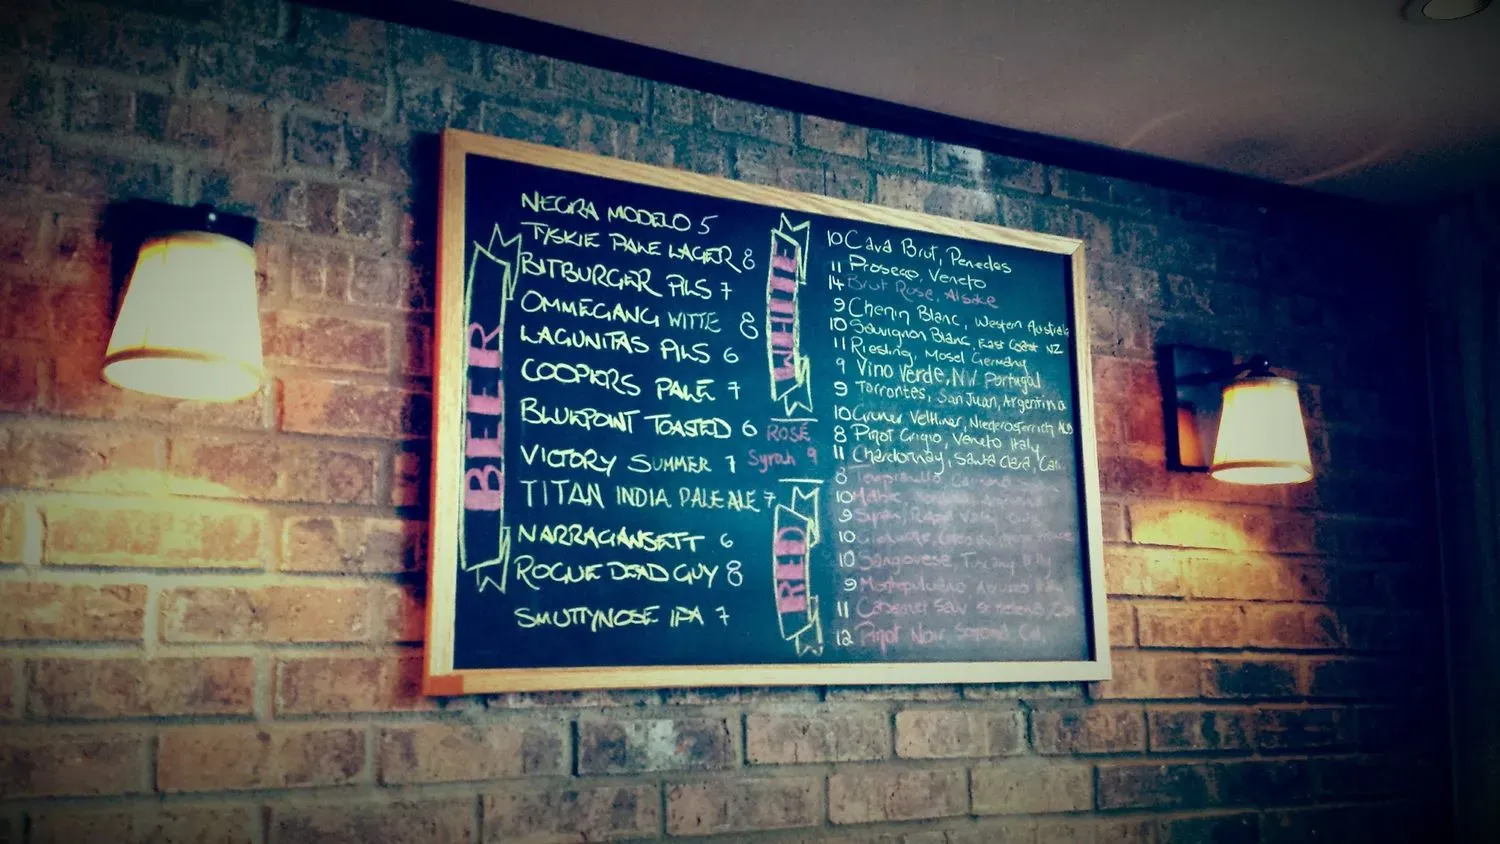 BEER
NEGRA MODELO 5
TYSKIE PALE LAGER 8
BITBURGER PILS 7
OMMEGANG WITTE 8
LAGUNITAS PILS 6
COOPERS PALE 7
BLUEPOINT TOASTED 6
VICTORY SUMMER 7
TITAN INDIA PALE ALE 7
NARRAGANSETT 6
ROGUE DEAD GUY 8
SMUTTYNOSE IPA 7
WHITE
10 Cava Brut, Penedes
11 Prosecco, Veneto
14 Brut Rose,
9 Chenin Blanc, Western Australia
10 Sauvignon Blanc, East Coast NZ
11 Riesling, Mosel Germany
9 Vino Verde, NV Portugal
9 Torrontes, San Juan, Argentina
10 Gruner Veltliner,
8 Pinot Grigio, Veneto Italy
11 Chardonnay, Santa Clara, Cali
ROSÉ
Syrah 9
RED
8 Tempranillo,
10 Malbec
9 Syrah,
10
10 Sangiovese, Tuscany Italy
9
11 Cabernet Sauv St Helena, Cal
12 Pinot Noir Sonoma Cal.